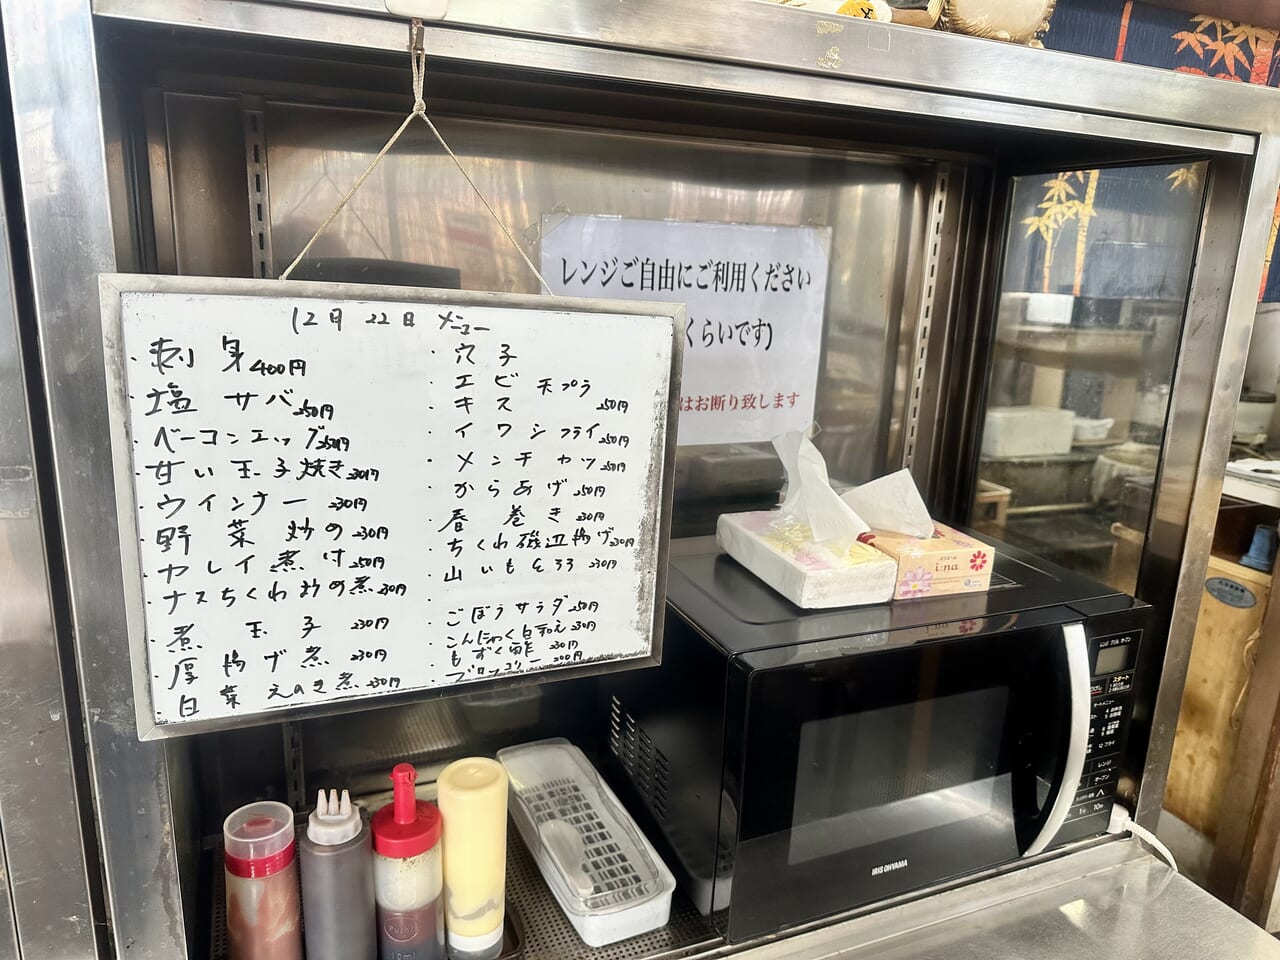 12月 22日 メニュー
・刺身 400円
・塩サバ 250円
・ベーコンエッグ 250円
・甘い玉子焼き 230円
・ウインナー 230円
・野菜炒め 230円
・カレイ煮付 250円
・ナスちくわ炒め煮 230円
・煮玉子 230円
・厚揚げ煮 230円
・白菜えのき煮 230円
・穴子
・エビ 天プラ
・キス 250円
・イワシフライ 250円
・メンチカツ 250円
・からあげ 250円
・春巻き 230円
・ちくわ磯辺揚げ 230円
・山いもとろろ 230円
・ごぼうサラダ 250円
・こんにゃく白和え 230円
・もずく酢 230円
・ブロッコリー 200円
レンジご自由にご利用ください
くらいです)
はお断り致します
i:na
IRIS OHYAMA
スタート
レンジ
オーブン